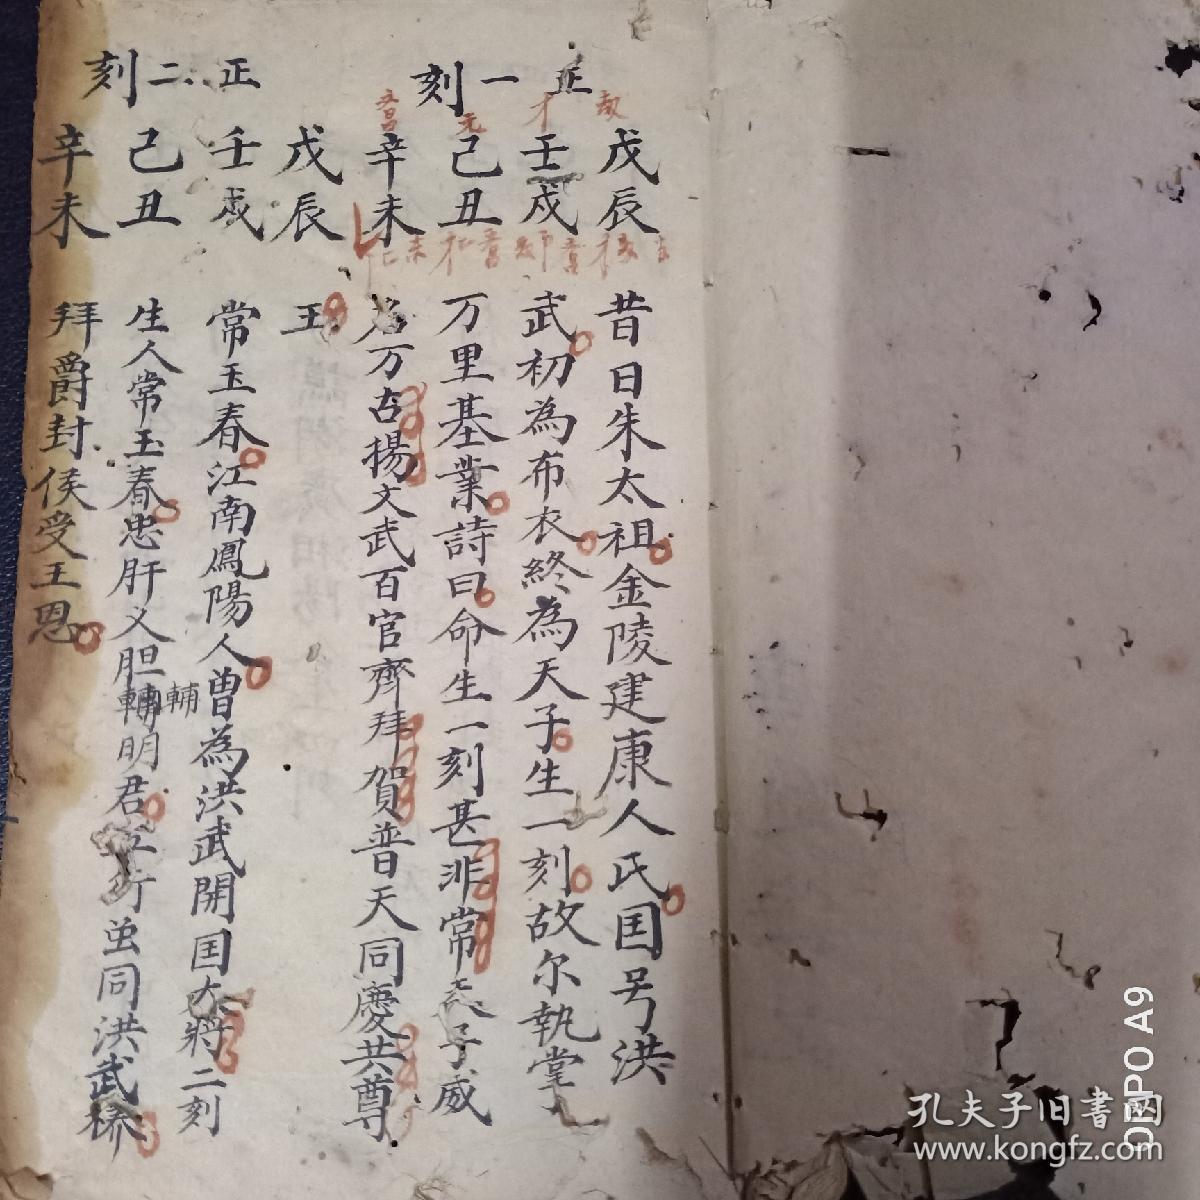 正一刻
戊辰
壬戌
己丑
辛未
昔日朱太祖金陵建康人氏囯号洪
武初為布衣終為天子生一刻故尔執掌
万里基業詩曰命生一刻甚非常天子威
名万古揚文武百官齊拜賀普天同慶共尊
王
正二刻
戊辰
壬戌
己丑
辛未
常玉春江南鳳陽人曾為洪武開囯大將二刻
生人常玉春忠肝义胆輔明君五行虽同洪武
輔
拜爵封侯受王恩
孔夫子旧書网
www.kongfz.com
OPPO A9